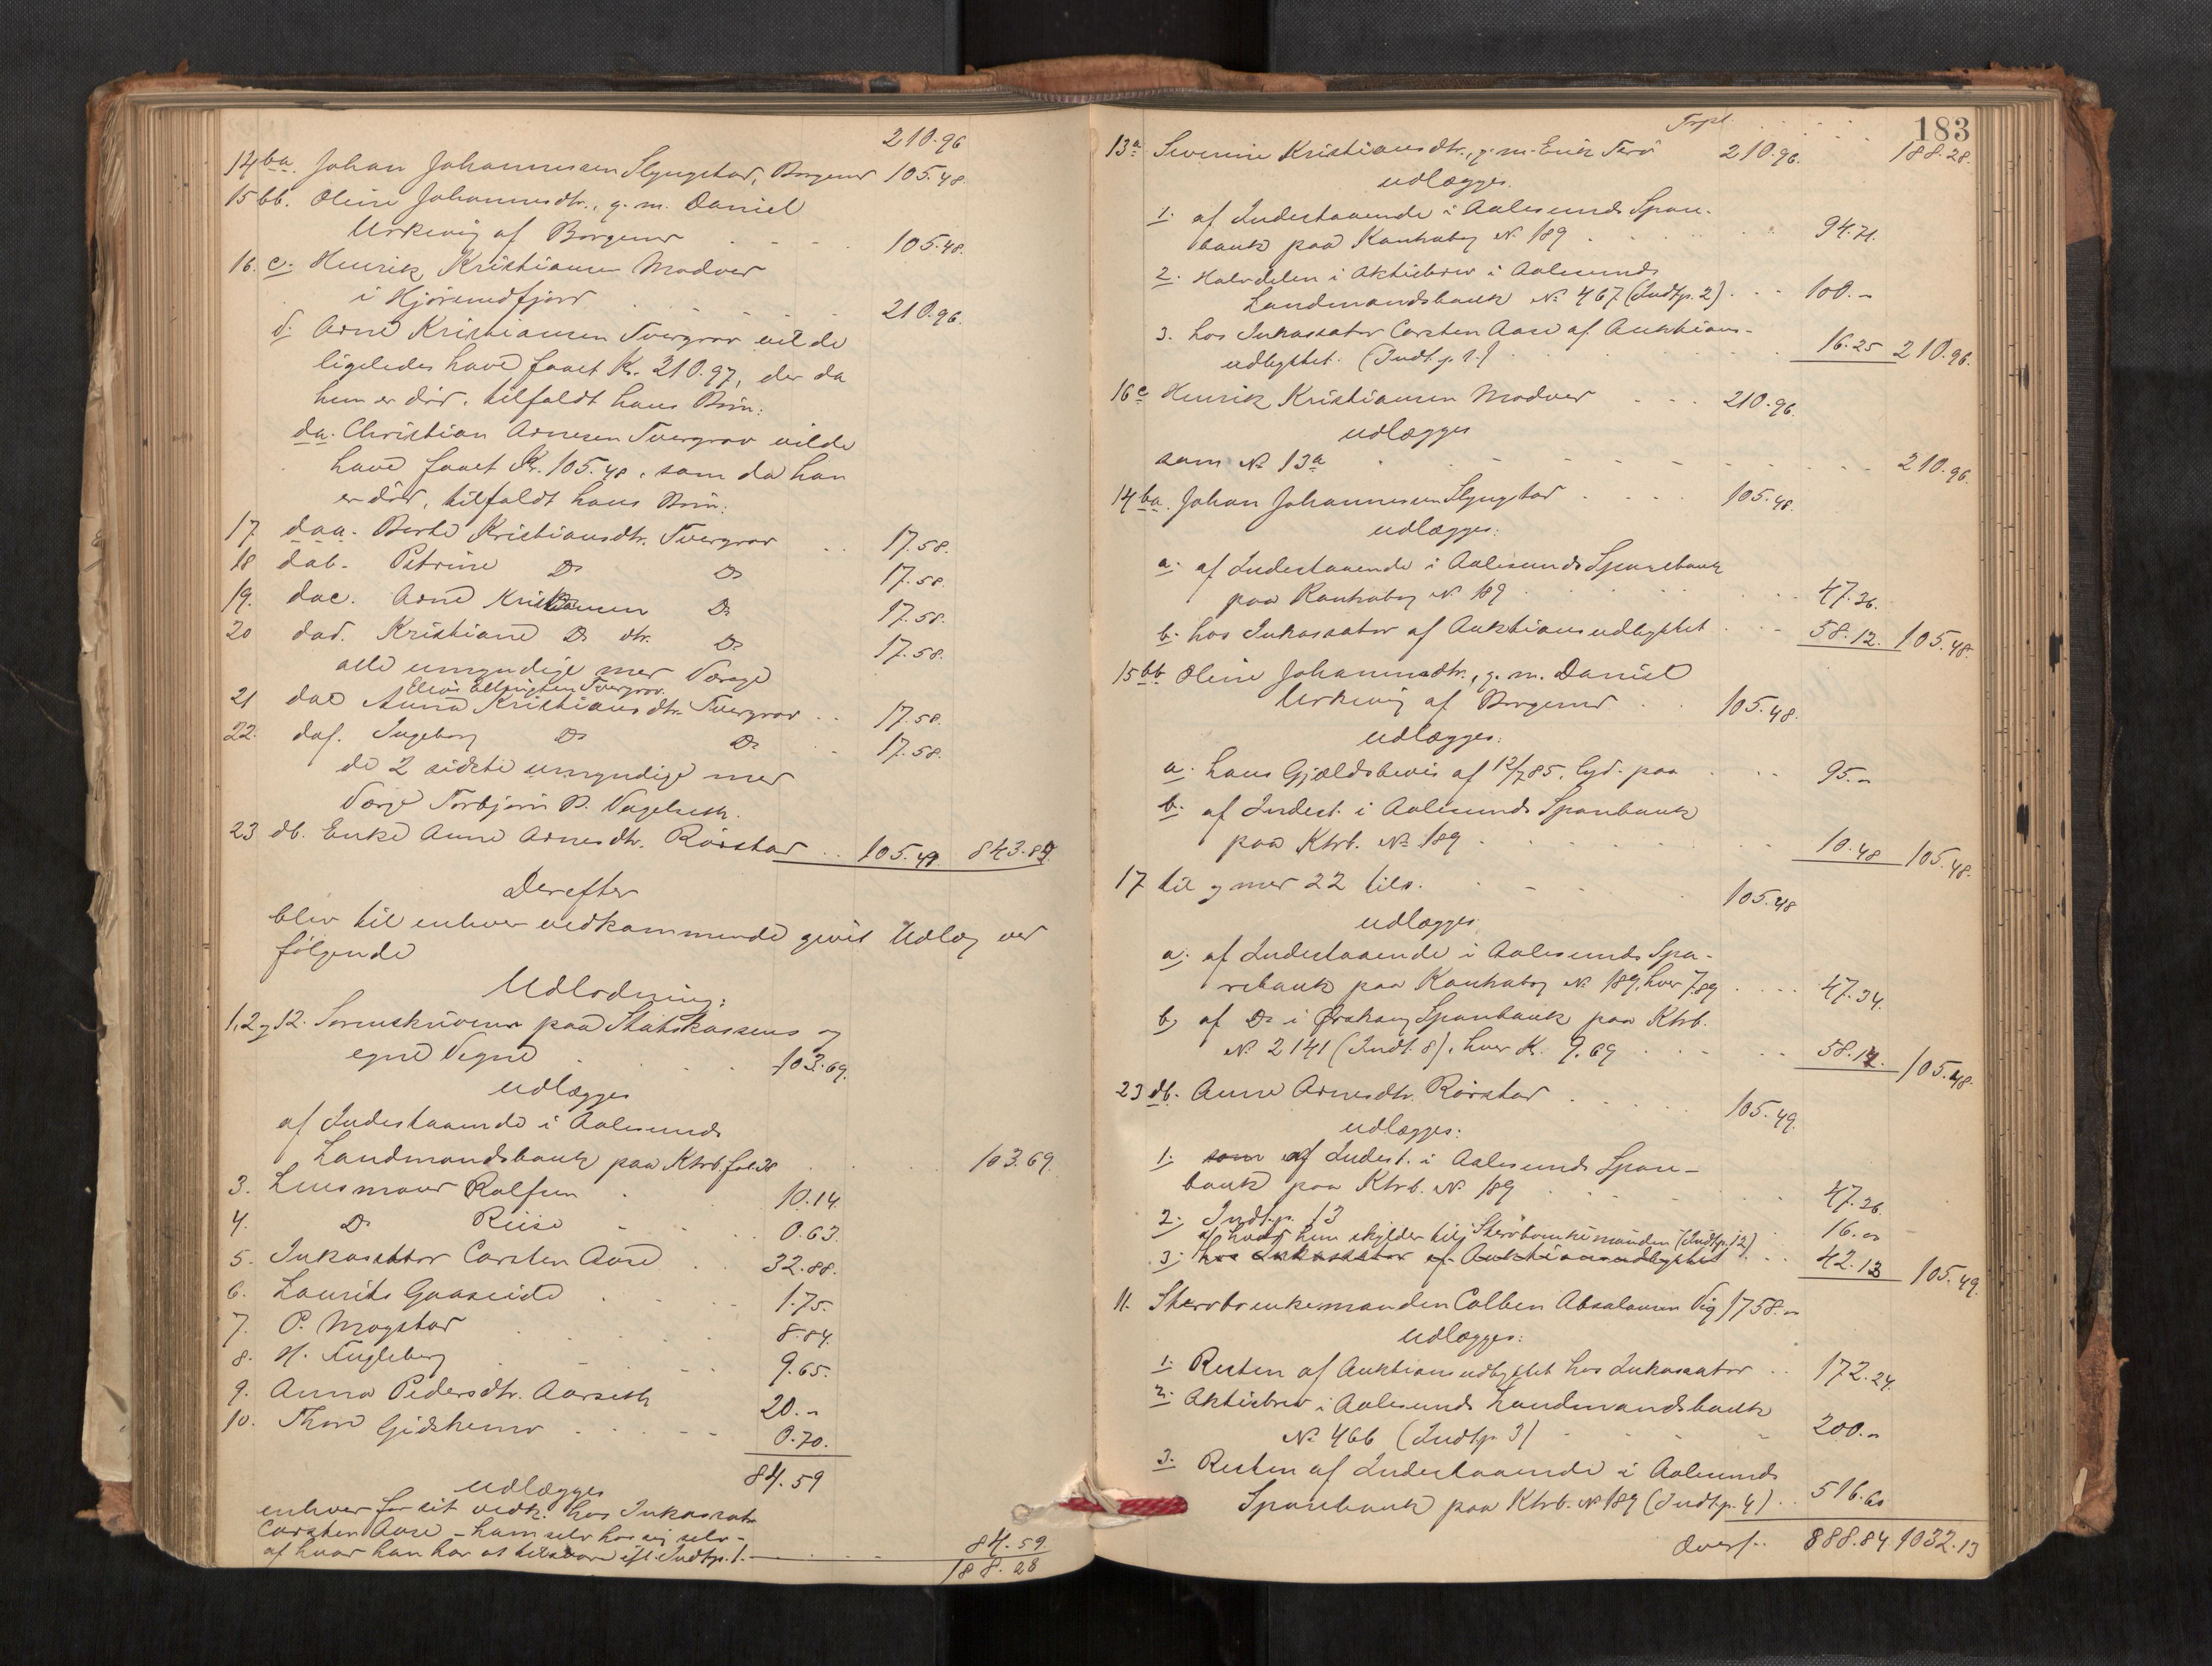 210.96
14 ba. Johan Johannessen Slyngstad, Borgund 105.48.
15 bb. Oline Johannesdtr., g. m. Daniel
Urkevig af Borgund 105.48.
16. c. Henrik Kristiansen Modvær
i Hjørundfjord 210.96.
d. Arne Kristiansen Tvergrov vilde
ligeledes have faaet Kr. 210.97, der da
hun er død, tilfaldt hans Børn:
da. Christian Arnesen Tvergrov vilde
have faaet Kr. 105.48, som da han
er død, tilfaldt hans Børn:
17 daa. Berte Kristiansdtr. Tvergrov 17.58.
18 dab. Petrine Do Do 17.58.
19. dac. Arne Kristiansen Do 17.58.
20 dad. Kristiane Do dtr. Do 17.58.
alle umyndige med Værge
Elias Tvergrov.
21 dae Anna Kristiansdtr. Tvergrov 17.58.
22. daf. Ingeborg Do Do 17.58.
de 2 sidste umyndige med
Værge Torbjørn P. Vagelseth.
23 db. Enke Anne Arnesdtr. Rørstad 105.49 843.89
Derefter
blev til enhver vedkommende givet Udlæg ved
følgende
Udlodning:
1, 2 og 12. Sorenskriveren paa Statskassens og
egne Vegne 103.69.
udlægges
af Indestaaende i Aalesunds
Landmandsbank paa Ktrb. fol. 38 103.69.
3. Lensmand Rolfsen 10.14.
4. Do Riise 0.63.
5. Inkassator Carsten Aase 32.88.
6. Laurits Gaaseide 1.75.
7. P. Mogstad 8.84.
8. H. Fugleberg 9.65.
9. Anna Pedersdtr. Aarseth 20.-
10. Thore Gidskemo 0.70.
84.59
udlægges
enhver for sit vedk. hos Inkassator
Carsten Aase - ham selv hos sig selv -
af hvad han har at tilsvare ifl. Indtp. 1. 84.59
188.28
183
Trpt. 188.28.
13a Severine Kristiansdtr., g. m. Erik Terø 210.96.
udlægges.
1. af Indestaaende i Aalesunds Spare-
bank paa Kontrabog No 189 94.71.
2. Halvdelen i Aktiebrev i Aalesunds
Landmandsbank No 467 (Indtp. 2) 100.-
3. hos Inkassator Carsten Aase af Auktions-
udbyttet. (Indt. p. 1.) 16.25 210.96.
16c Henrik Kristiansen Modvær 210.96.
udlægges
som No 13a 210.96.
14 ba. Johan Johannessen Slyngstad 105.48.
udlægges:
a. af Indestaaende i Aalesunds Sparebank
paa Kontrabog No 189 47.36.
b. hos Inkassator af Auktionsudbyttet 58.12. 105.48.
15 bb Oline Johannesdtr., g. m. Daniel
Urkevig af Borgund 105.48.
udlægges:
a. hans Gjældsbevis af 12/7 85, lyd. paa 95.-
b. af Indest. i Aalesunds Sparebank
paa Ktrb. No 189 10.48 105.48.
17 til og med 22 tils. 105.48
udlægges
a. af Indestaaende i Aalesunds Spa-
rebank paa Kontrabog No 189, hver 7.89 47.34.
b. af Do i Ørskoug Sparebank paa Ktrb.
No 2141 (Indt. 8), hver Kr. 9.69 58.14. 105.48.
23 db. Anne Arnesdtr. Rørstad 105.49.
udlægges:
1. som af Indest. i Aalesunds Spare-
bank paa Ktrb. No 189 47.36
2. Indtp. 13 16.-
af hvad hun skylder til Stervboenkemanden (Indtp. 12)
3. hos Inkassator af Auktionsudbyttet 42.13 105.49.
11. Stervboenkemanden Colben Absalonsen Vig 1758.-
udlægges:
1. Resten af Auktionsudbyttet hos Inkassator 172.24.
2. Aktiebrev i Aalesunds Landmandsbank
No 466 (Indtp. 3) 200.-
3. Resten af Indestaaende i Aalesunds
Sparebank paa Ktrb. No 189 (Indtp. 4) 516.60
Overf. 888.84. 1032.13